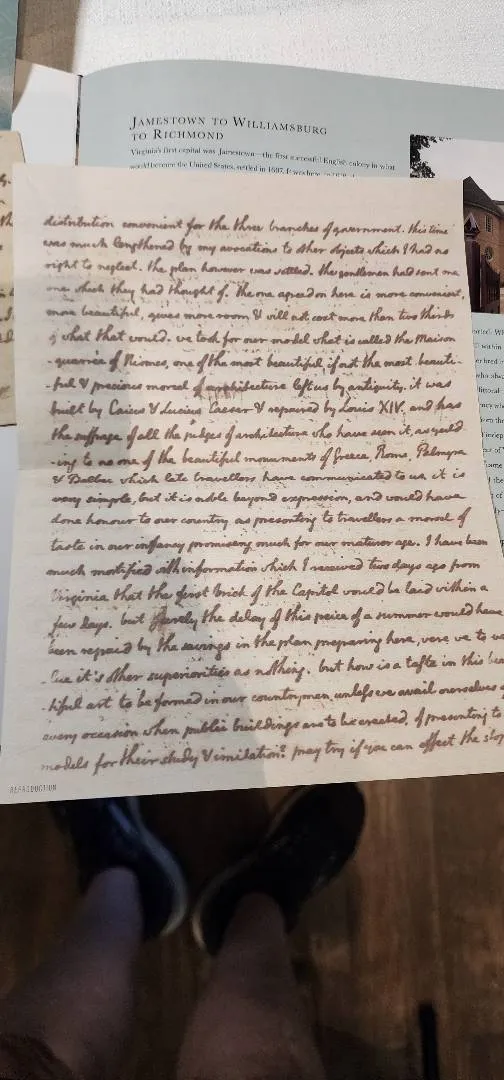 JAMESTOWN TO WILLIAMSBURG
TO RICHMOND
Virginia's first capital was Jamestown—the first successful English colony in what
would become the United States, settled in 1607. It was here
distribution convenient for the three branches of government. this time
was much lengthened by my avocations to other objects which I had no
right to neglect. the plan however was settled. the gentlemen had sent me
one which they had thought of. the one agreed on here is more convenient,
more beautiful, gives more room & will not cost more than two thirds
of what that would. we took for our model what is called the Maison
-quarrée of Nismes, one of the most beautiful, if not the most beauti-
-ful & precious morcel of architecture left us by antiquity. it was
built by Caius & Lucius Caesar & repaired by Louis XIV. and has
the suffrage of all the judges of architecture who have seen it, as yeild
-ing to no one of the beautiful monuments of Greece, Rome, Palmyra
& Balbec which late travellers have communicated to us. it is
very simple, but it is noble beyond expression, and would have
done honour to our country as presenting to travellers a morcel of
taste in our infancy promising much for our maturer age. I have been
much mortified with information which I received two days ago from
Virginia that the first brick of the Capitol would be laid within a
few days. but surely the delay of this peice of a summer would have
been repaid by the savings in the plan preparing here, were we to va
-lue it's other superiorities as nothing. but how is a taste in this beau
-tiful art to be formed in our countrymen, unless we avail ourselves of
every occasion when public buildings are to be erected, of presenting to
models for their study & imitation? pray try if you can effect the stop
REPRODUCTION